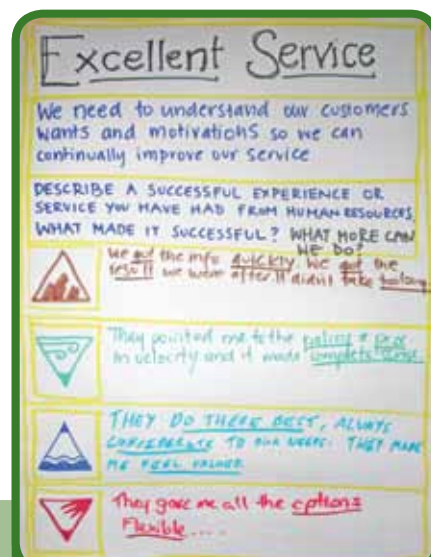 Excellent Service
We need to understand our customers
wants and motivations so we can
continually improve our service
DESCRIBE A SUCCESSFUL EXPERIENCE OR
SERVICE YOU HAVE HAD FROM HUMAN RESOURCES.
WHAT MADE IT SUCCESSFUL? WHAT MORE CAN
WE DO?
We got the info quickly. We got the
result we were after it didn't take
They pointed me to the policy +
in velocity and it made complete sense
THEY DO THERE BEST, ALWAYS
CONSIDERATE TO OUR NEEDS. THEY MADE
ME FEEL VALUED
They gave me all the options
Flexible ....